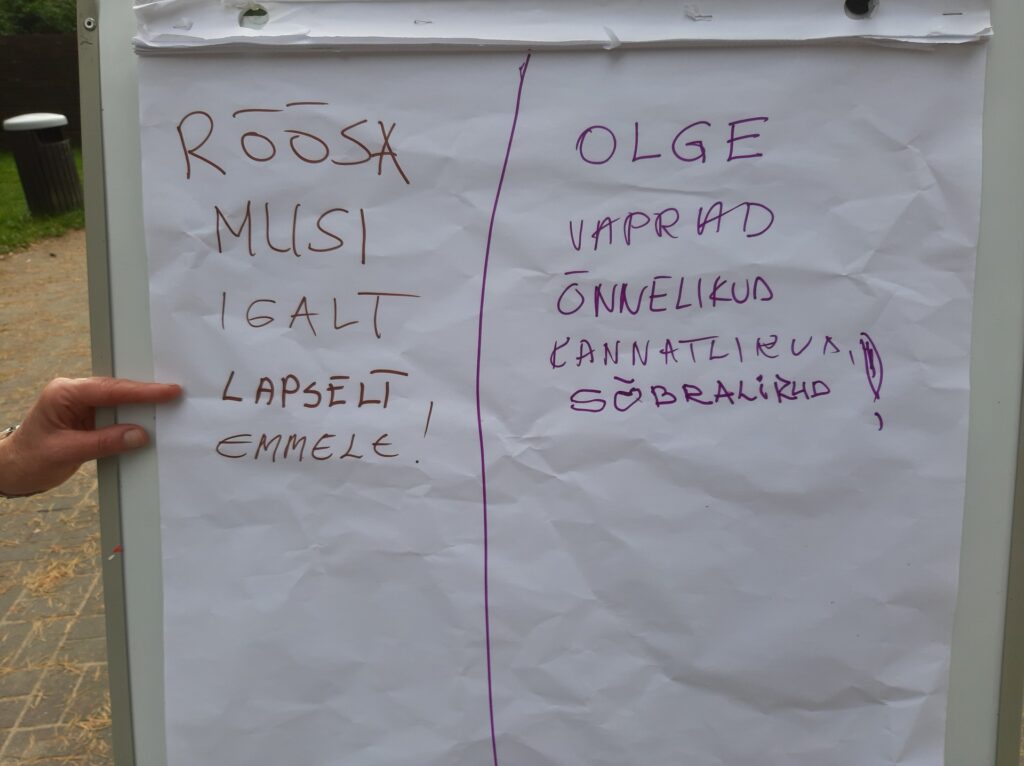 RÕÕSA
MUSI
IGALT
LAPSELT
EMMELE!
OLGE
VAPRAD
ÕNNELIKUD
KANNATLIKUD,
SÕBRALIKUD!